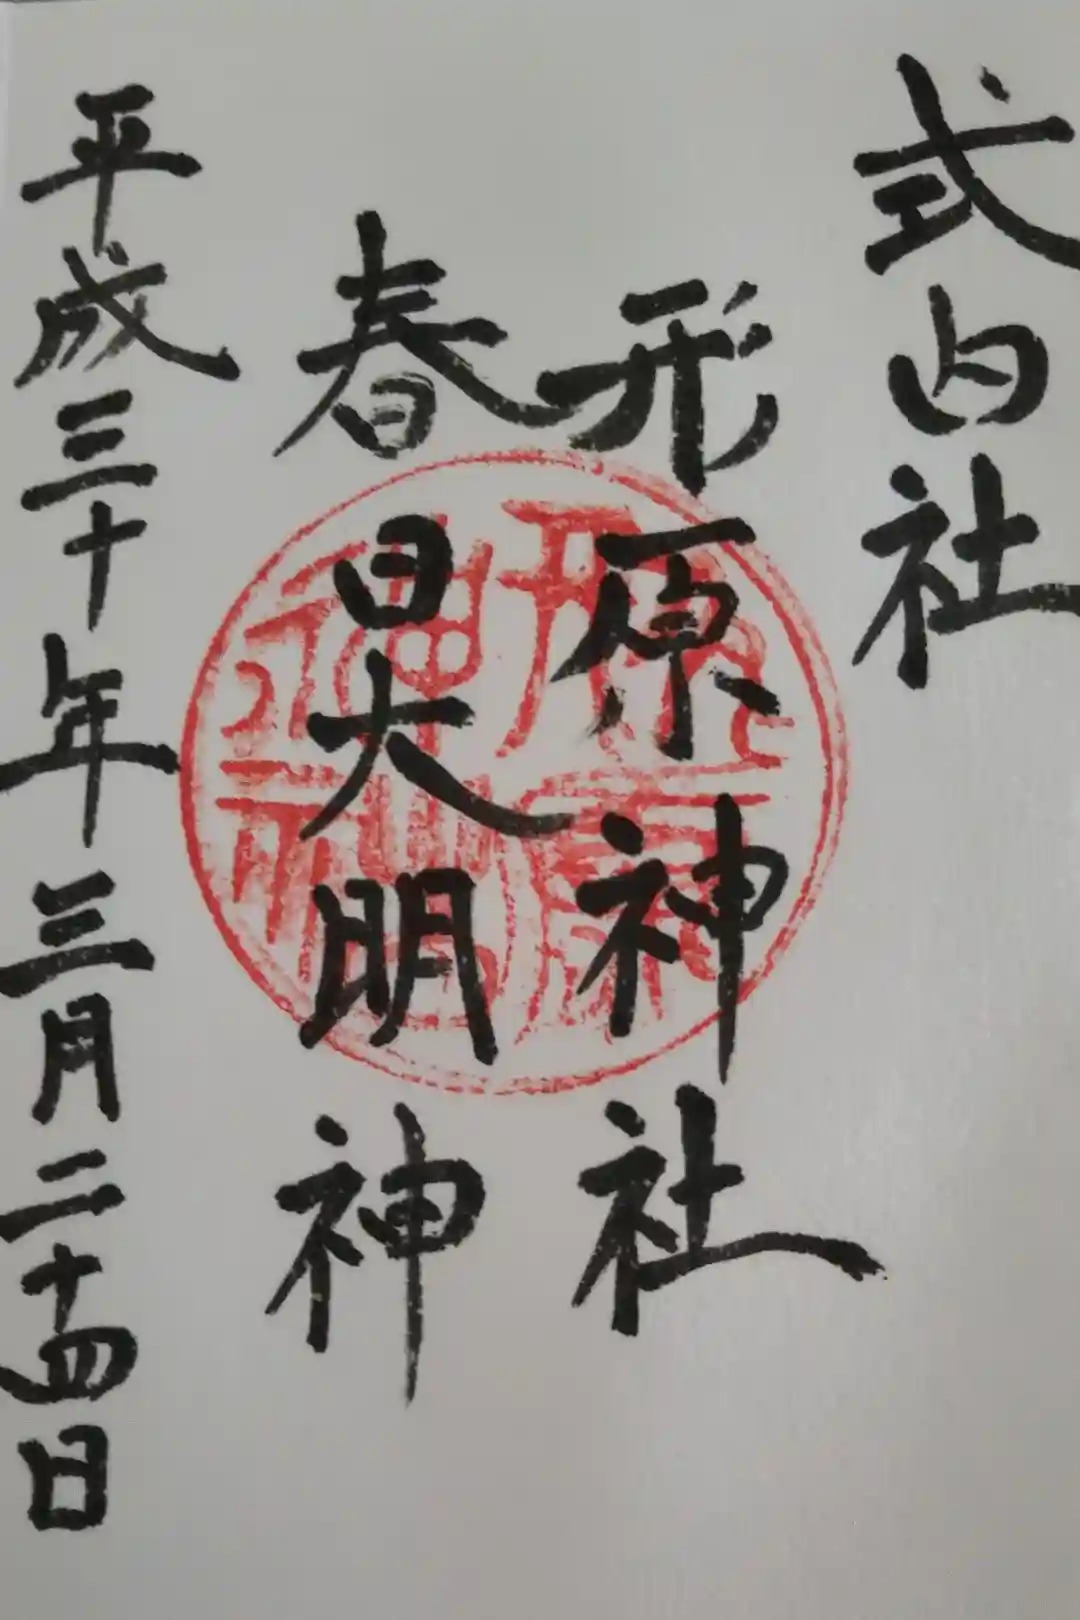 式内社
形原神社
春日大明神
平成三十年三月二十四日